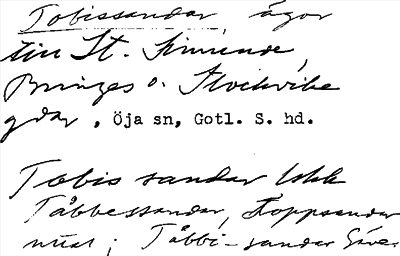 Tobissandar, ägor
till St. Simunde,
Bringes o. Stockvike
gdar, Öja sn, Gotl. S. hd.
Tobis sandar Ukk
Tåbbessandar, Koppsandar
nuat; Tåbbi-sandar Säve.